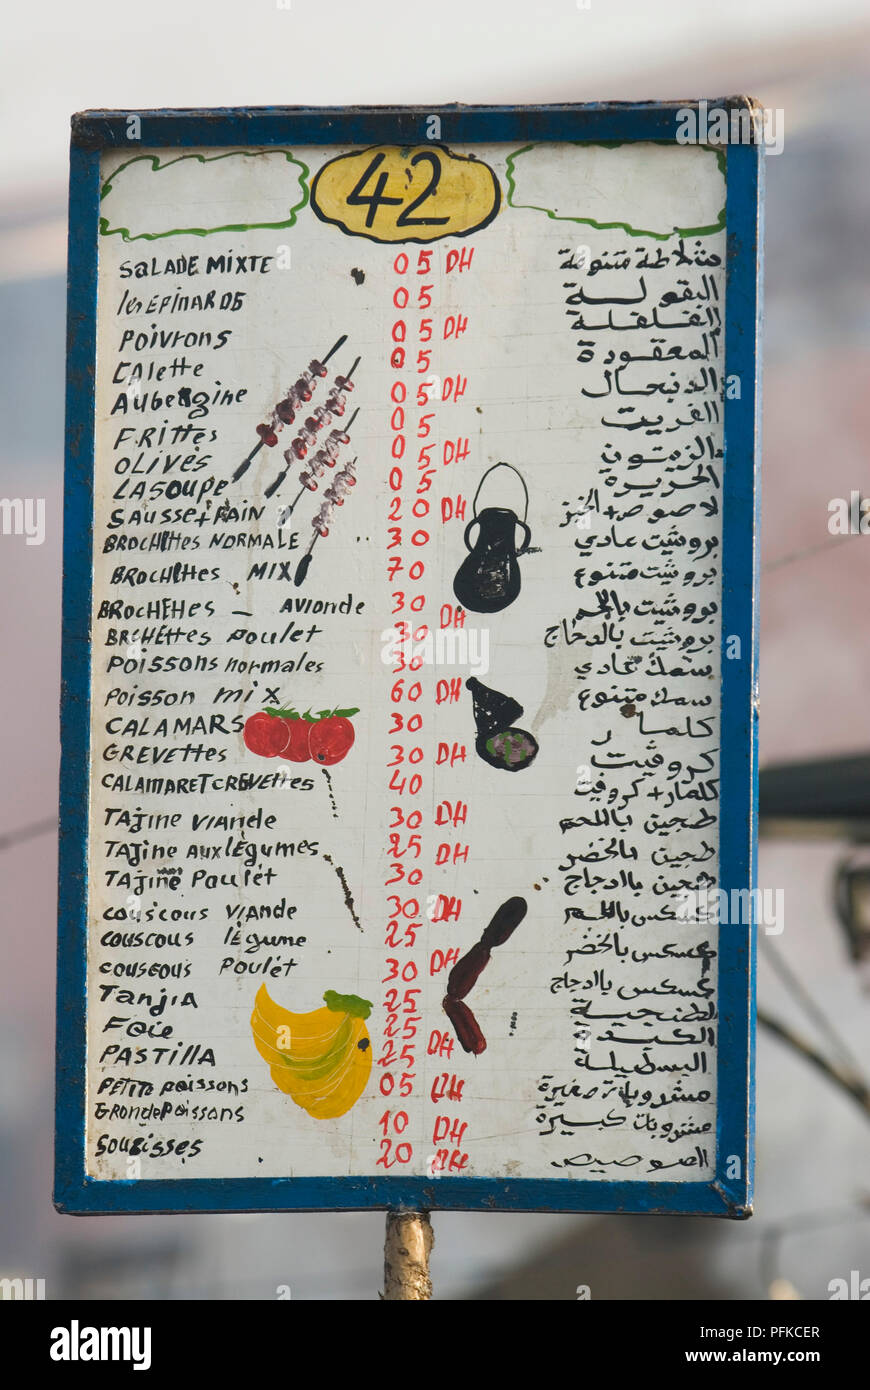 42
SALADE MIXTE 05 DH شلاطة متنوعة
les EPINARDS 05 البقولة
POIVRONS 05 DH الفلفلة
CALETTE 05 المعقودة
AUBERGINE 05 DH الدنجال
FRITTES 05 الفريت
OLIVES 05 DH الزيتون
LASOUPE 05 الحريرة
SAUSSE + PAIN 20 DH لاصوص + الخبز
BROCHETTES NORMALE 30 بروشيت عادي
BROCHETTES MIX 70 بروشيت متنوع
BROCHETTES _ AVIANDE 30 DH بروشيت باللحم
BRCHETTES POULET 30 بروشيت بالدجاج
POISSONS NORMALES 30 سمك عادي
POISSON MIX 60 DH سمك متنوع
CALAMARS 30 كلمار
GREVETTES 30 DH كروفيت
CALAMARET CREVETTES 40 كلمار + كروفيت
TAJINE VIANDE 30 DH طجين باللحم
TAJINE AUX LÉGUMES 25 DH طجين بالخضر
TAJINE POULET 30 طجين باادجاج
COUSCOUS VIANDE 30 DH كسكس باللحم
COUSCOUS LÉGUME 25 كسكس بالخضر
COUSCOUS POULET 30 DH كسكس باادجاج
TANJIA 25 الطنجية
FOIE 25 الكبدة
PASTILLA 25 DH البسطيلة
PETITE POISSONS 05 DH مشروبات صغيرة
GRONDE POISSONS 10 DH مشروبات كبيرة
SOUSISSES 20 DH الصوصيص
alamy
PFKCER
www.alamy.com